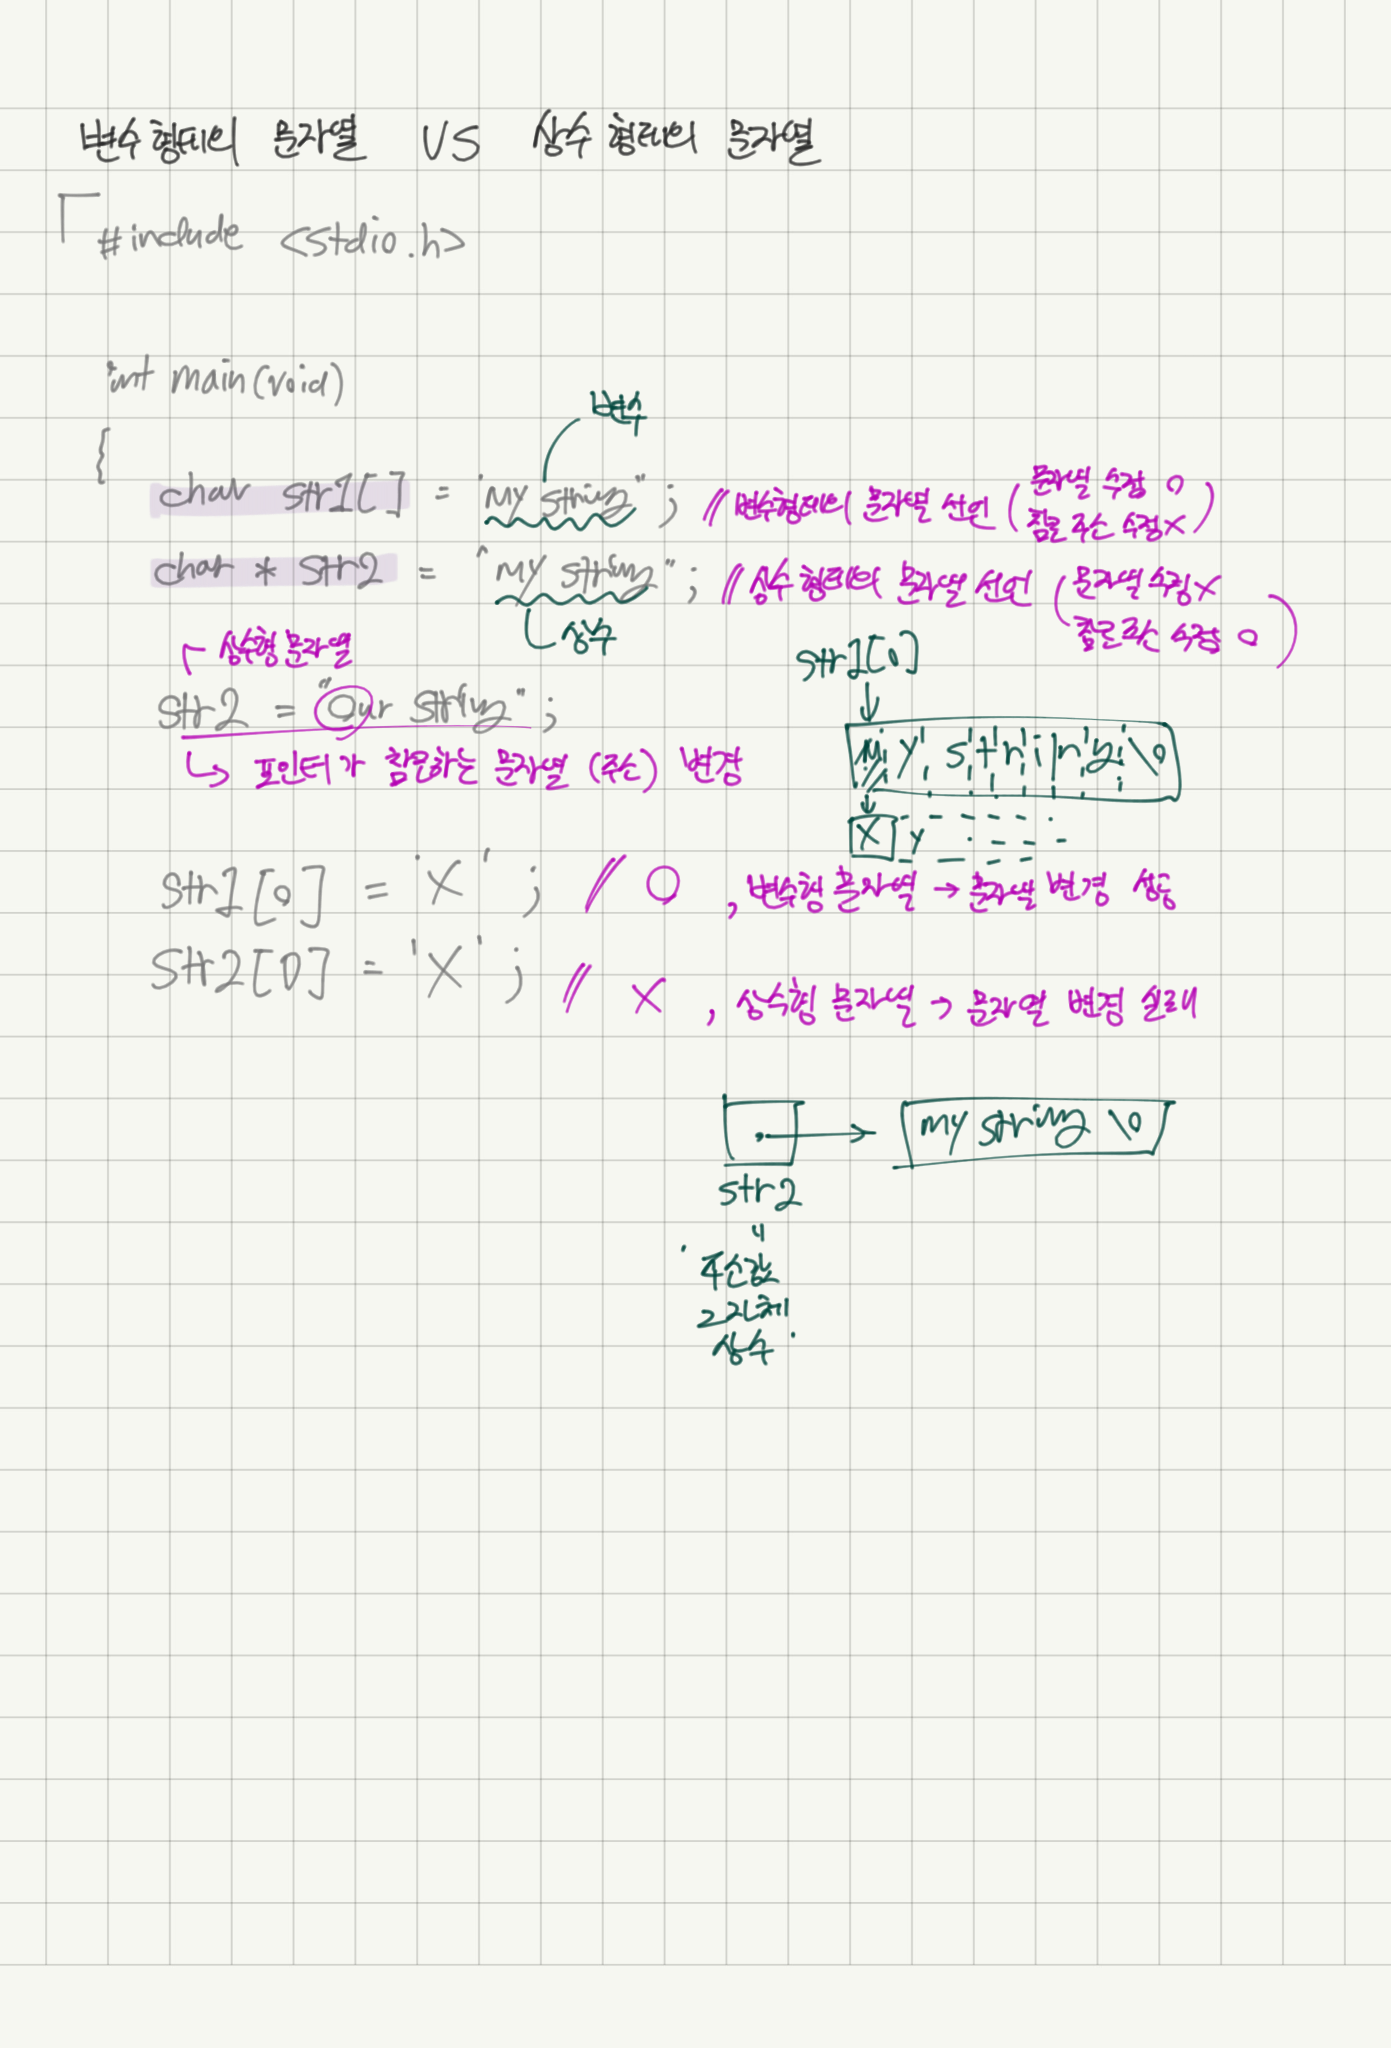 변수형태의 문자열 VS 상수형태의 문자열
#include <stdio.h>
int main(void)
{
변수
char str1[] = "My string"; // 변수형태의 문자열 선언 (문자열 수정 O
참조 주소 수정 X)
char * str2 = "My string"; // 상수형태의 문자열 선언 (문자열 수정 X
참조 주소 수정 O)
상수
상수형 문자열
str1[0]
str2 = "Our string";
↳ 포인터가 참조하는 문자열 (주소) 변경
M y s t r i n g \0
X y
str1[0] = 'X'; // O, 변수형 문자열 → 문자열 변경 성공
str2[0] = 'X'; // X, 상수형 문자열 → 문자열 변경 실패
my string \0
str2
주소값
그 자체
상수